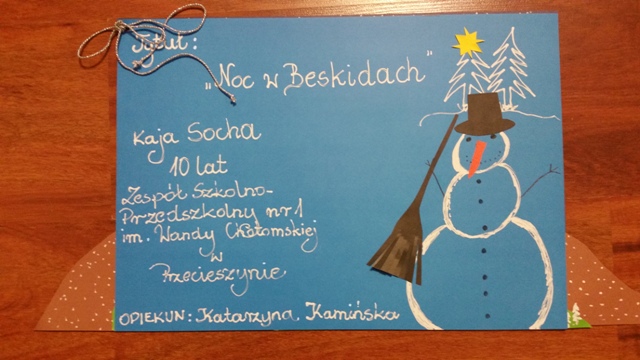 Tytuł:
„Noc w Beskidach"
Kaja Socha
10 lat
Zespół Szkolno-
Przedszkolny nr 1
im. Wandy Chotomskiej
w
Przecieszynie
OPIEKUN: Katarzyna Kamińska